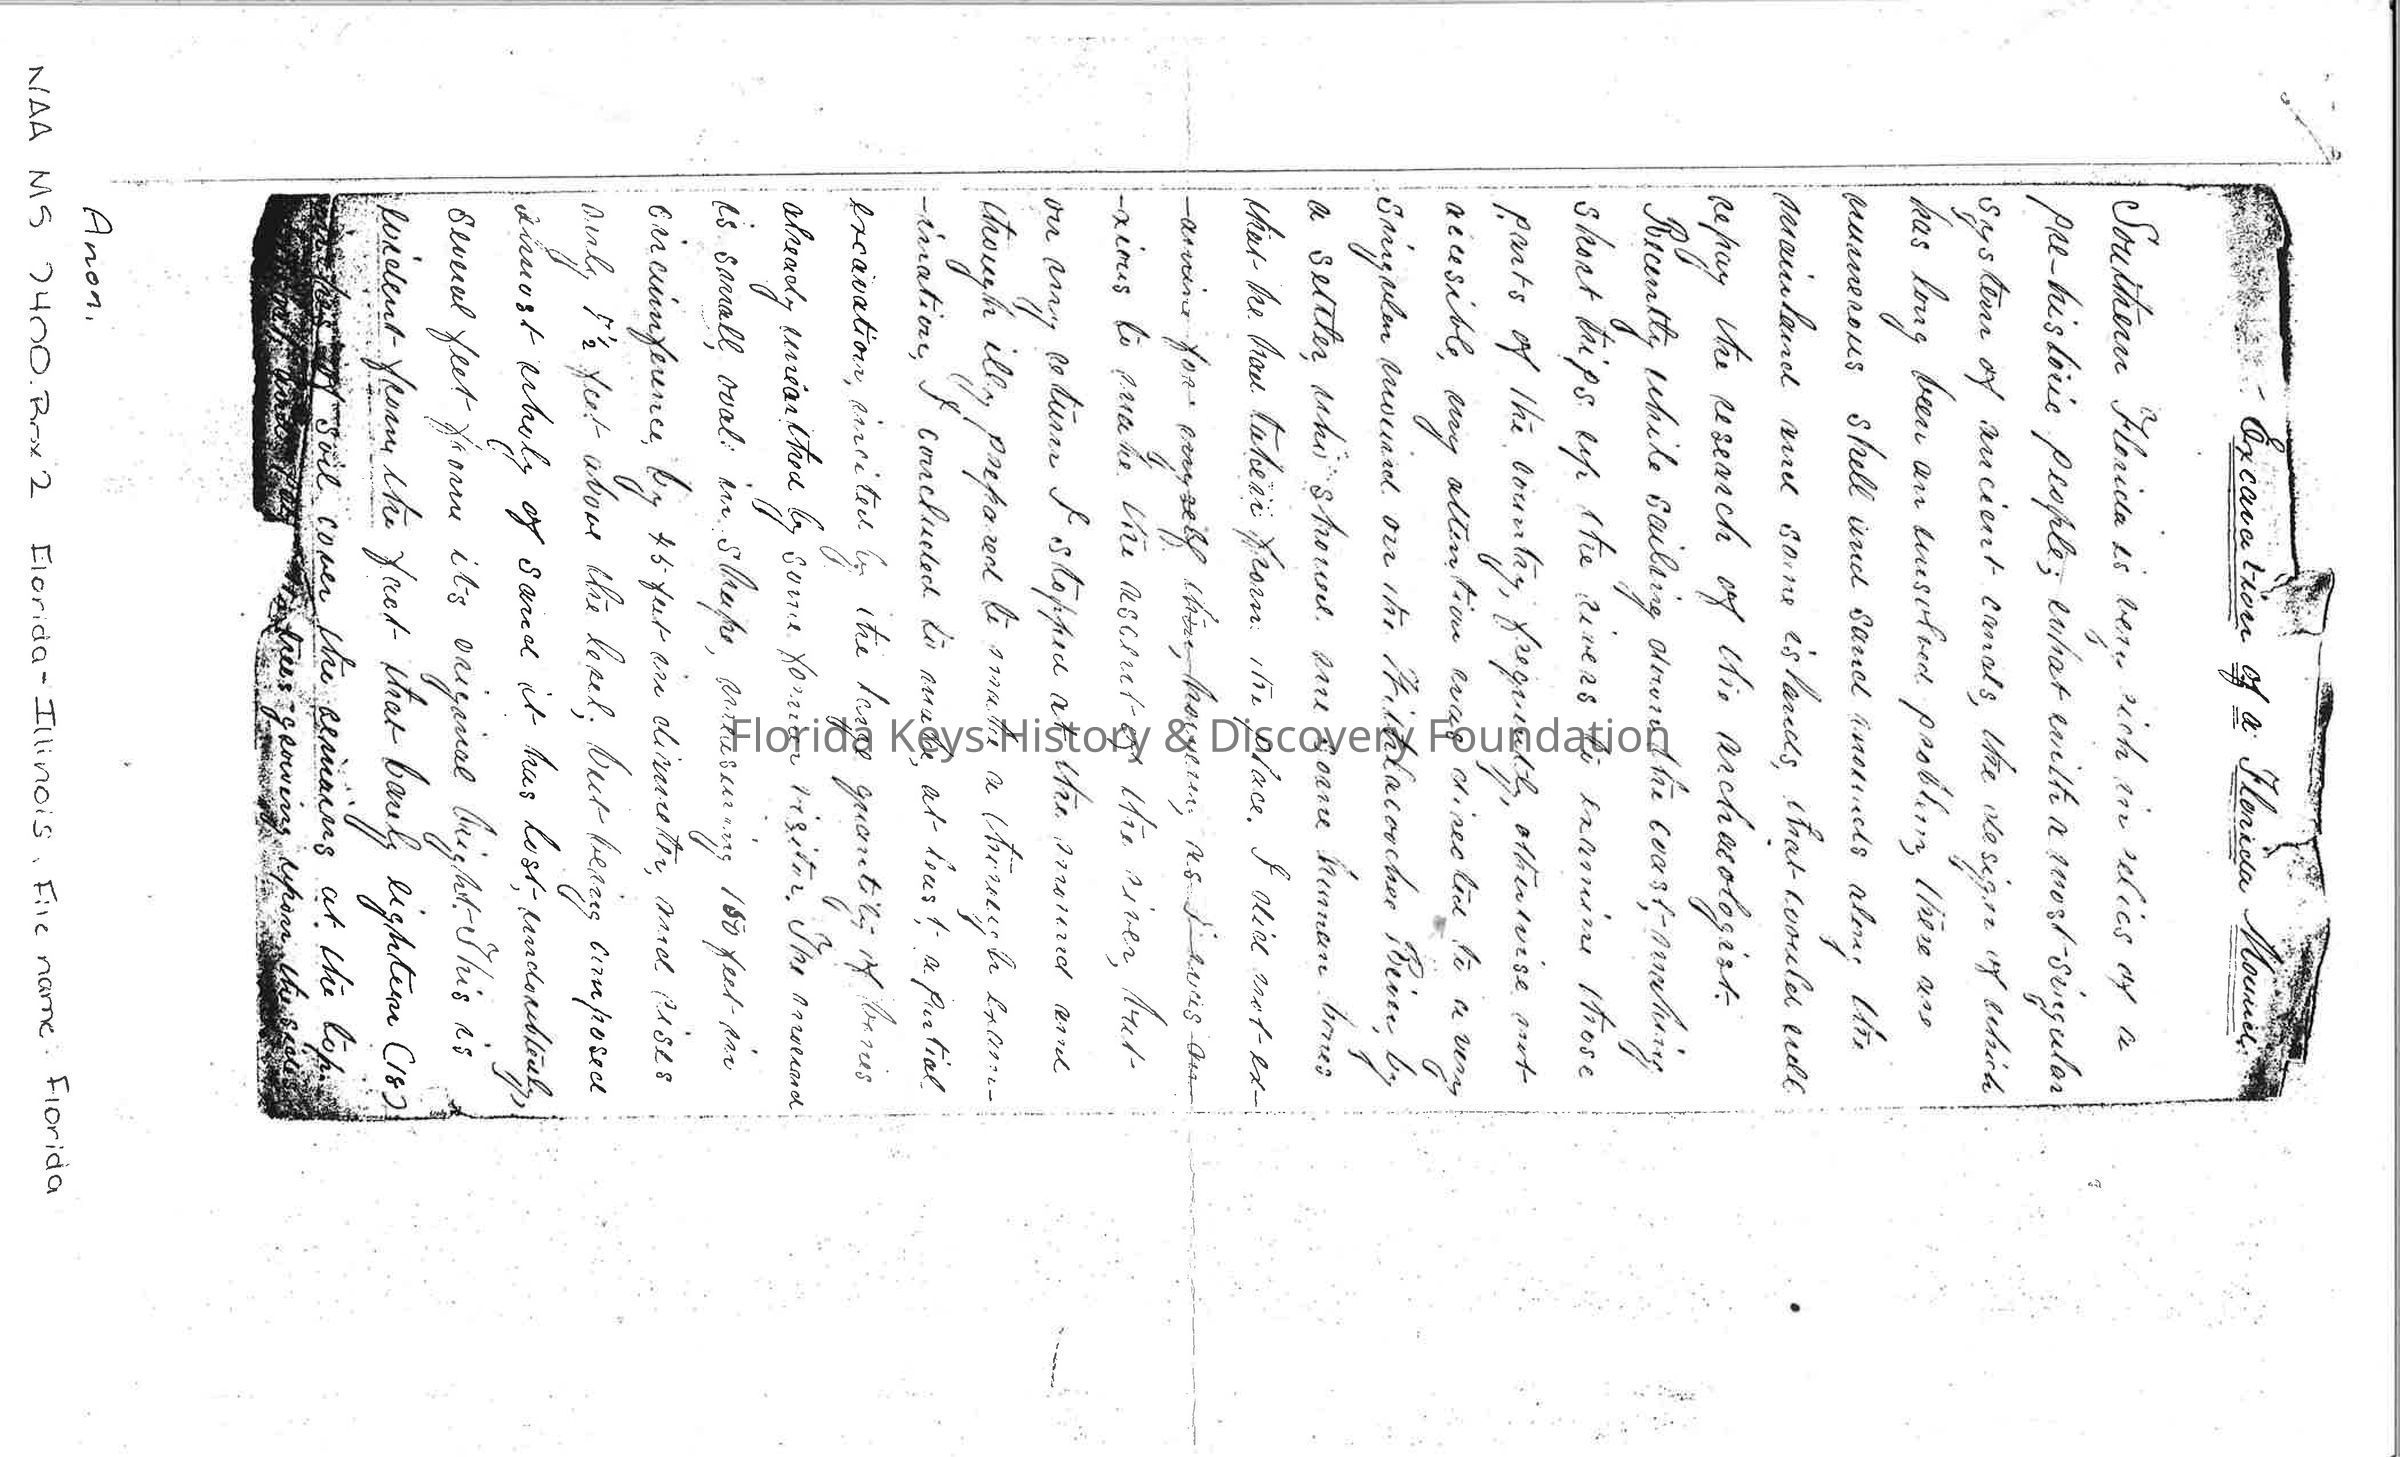 - Excavation of a Florida Mound.
Southern Florida is very rich in relics of a
pre-historic people; what with a most singular
system of ancient canals, the design of which
has long been an unsolved problem, there are
numerous shell and sand mounds along the
mainland and some islands, that would well
repay the research of the archaeologist.
Recently while sailing down the coast, making
short trips up the rivers to examine those
parts of the country, frequently, otherwise not
accessible, my attention was directed to a very
singular mound on the Withlacoochee River, by
a settler, who showed me some human bones
that he had taken from the place. I did not ex-
-amine for myself then, however, as I was an-
-xious to make the ascent of the river, but
on my return I stopped at the mound and
though illy prepared to make a through exam-
-ination, I concluded to make, at least, a partial
excavation, incited by the large quantity of bones
already unearthed by some former visitor. The mound
is small, oval in shape, measuring 150 feet in
circumference, by 45 feet in diameter, and rises
only 5½ feet above the level; but being composed
almost wholy of sand it has lost, undoubtedly,
several feet from its original hight. This is
evident from the fact that barely eighteen (18)
inches of soil cover the remains at the top
trees growing upon the side
Florida Keys History & Discovery Foundation
Anon.
NAA MS 7400.Box 2 Florida-Illinois. File name: Florida